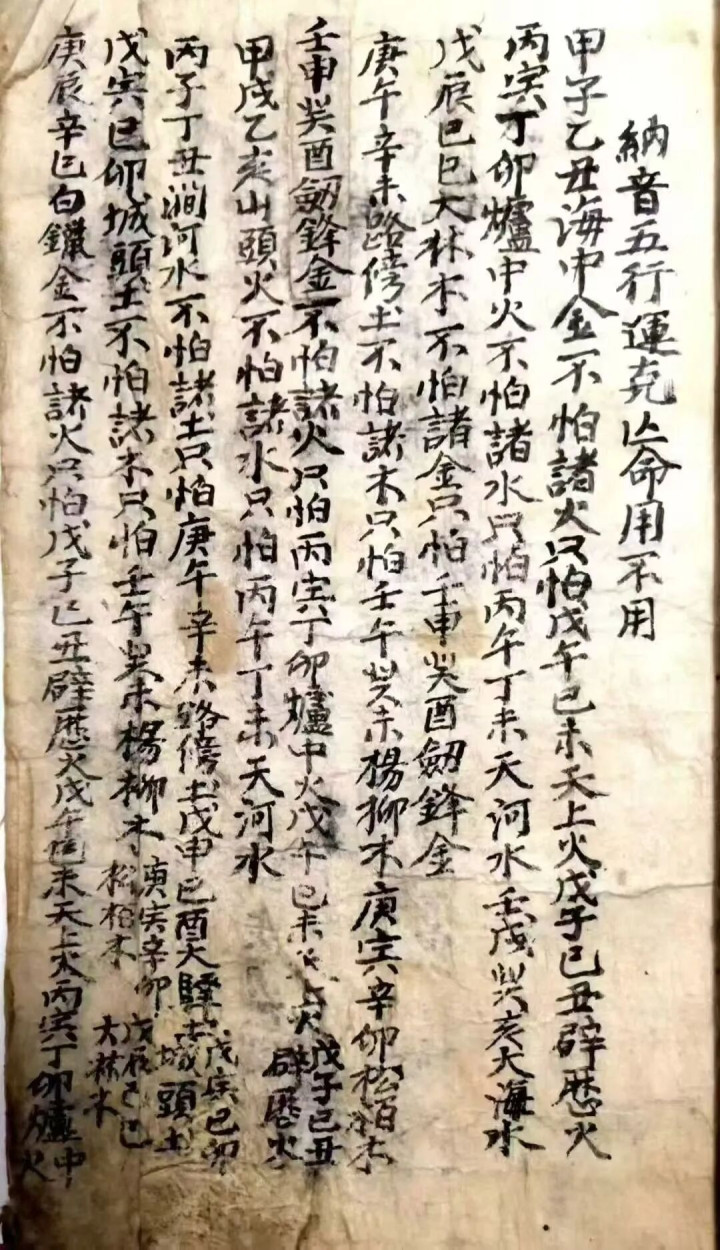 納音五行運克亡命用不用
甲子乙丑海中金不怕諸火只怕戊午己未天上火戊子己丑辟歷火
丙寅丁卯爐中火不怕諸水只怕丙午丁未天河水壬戌癸亥大海水
戊辰巳巳大林木不怕諸金只怕壬申癸酉劒鋒金
庚午辛未路傍土不怕諸木只怕壬午癸未楊柳木庚寅辛卯松栢木
壬申癸酉劒鋒金不怕諸火只怕丙寅丁卯爐中火戊午己未天上火戊子己丑辟歷火
甲戌乙亥山頭火不怕諸水只怕丙午丁未天河水
丙子丁丑澗河水不怕諸土只怕庚午辛未路傍土戊申己酉大驛土戊寅己卯城頭土
戊寅己卯城頭土不怕諸木只怕壬午癸未楊柳木庚寅辛卯松柏木戊辰己巳大林木
庚辰辛巳白鑞金不怕諸火只怕戊子己丑辟歷火戊午己未天上火丙寅丁卯爐中火